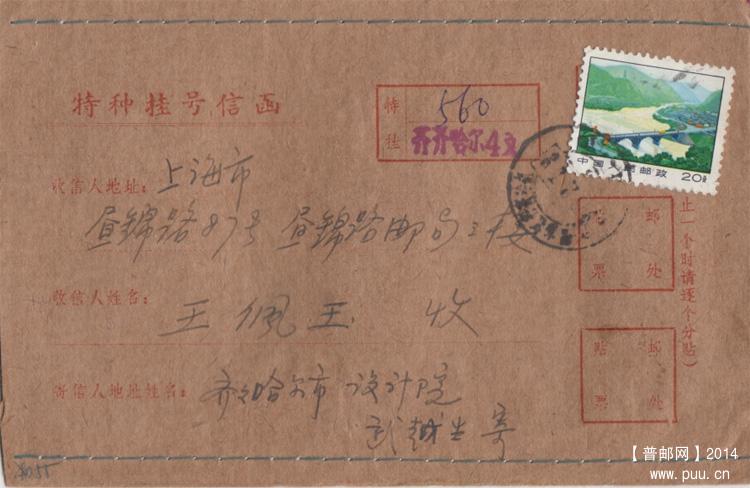 特种挂号信函
特 560
挂 齐齐哈尔4支
中国人民邮政
20分
收信人地址：上海市
昼锦路87号 昼锦路邮局三楼
收信人姓名：
王佩玉 收
寄信人地址姓名：齐々哈尔市 设计院
武越生寄
贴 邮
票 处
贴 邮
票 处
止一个时请逐个分贴）
【普邮网】2014
www.puu.cn